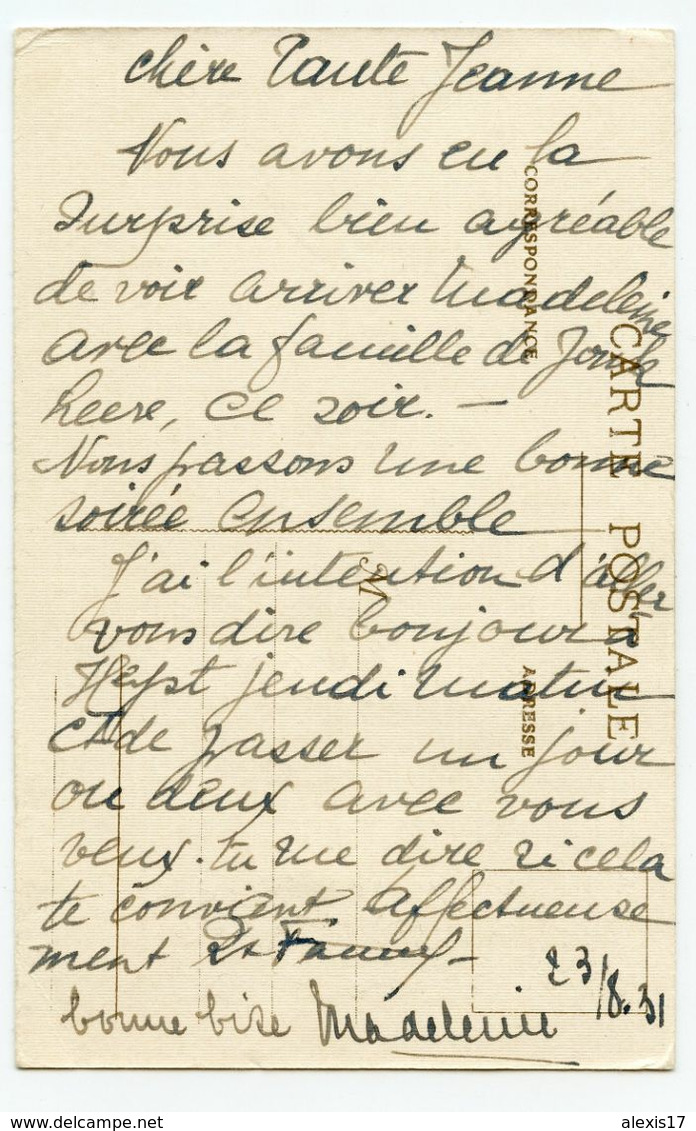 chère Tante Jeanne
Nous avons eu la
Surprise bien agréable
de voir arriver Madeleine
avec la famille de Jonck
heere, ce soir. —
Nous passons une bonne
soirée ensemble
J'ai l'intention d'aller
vous dire bonjour à
Heyst jeudi matin
et de passer un jour
ou deux avec vous
veux-tu me dire si cela
te convient Affectueuse
ment
23/8.31
bonne bise Madeleine
CORRESPONDANCE
CARTE POSTALE
M
ADRESSE
alexis17